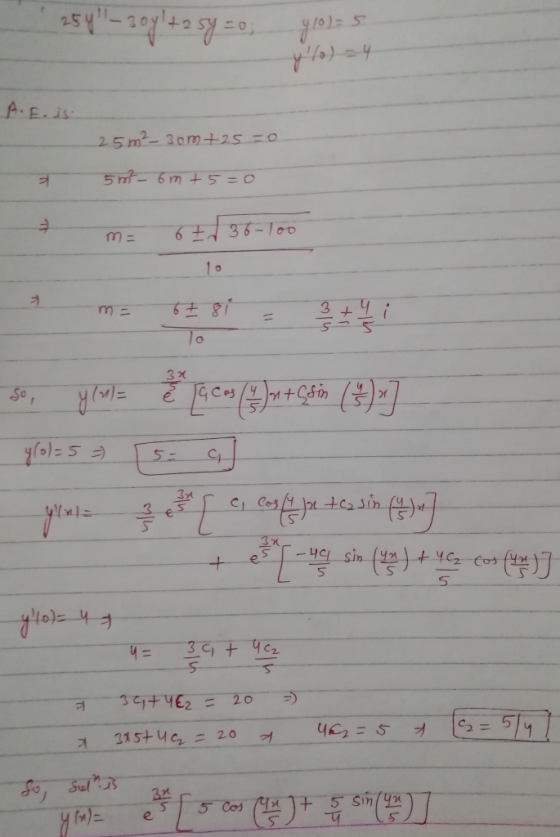 25y'' - 30y' + 25y = 0; y(0) = 5
y'(0) = 4
A.E. is.
25m² - 30m + 25 = 0
⇒ 5m² - 6m + 5 = 0
⇒ m = (6 ± √(36-100))/10
⇒ m = (6 ± 8i)/10 = 3/5 ± 4/5 i
So, y(x) = e^(3x/5) [C₁ cos(4/5)x + C₂ sin(4/5)x]
y(0) = 5 ⇒ 5 = C₁
y'(x) = 3/5 e^(3x/5) [C₁ cos(4/5)x + C₂ sin(4/5)x]
+ e^(3x/5) [-4C₁/5 sin(4x/5) + 4C₂/5 cos(4x/5)]
y'(0) = 4 ⇒
4 = 3/5 C₁ + 4C₂/5
⇒ 3C₁ + 4C₂ = 20 ⇒
⇒ 3×5 + 4C₂ = 20 ⇒ 4C₂ = 5 ⇒ C₂ = 5/4
So, solⁿ. is
y(x) = e^(3x/5) [5 cos(4x/5) + 5/4 sin(4x/5)]